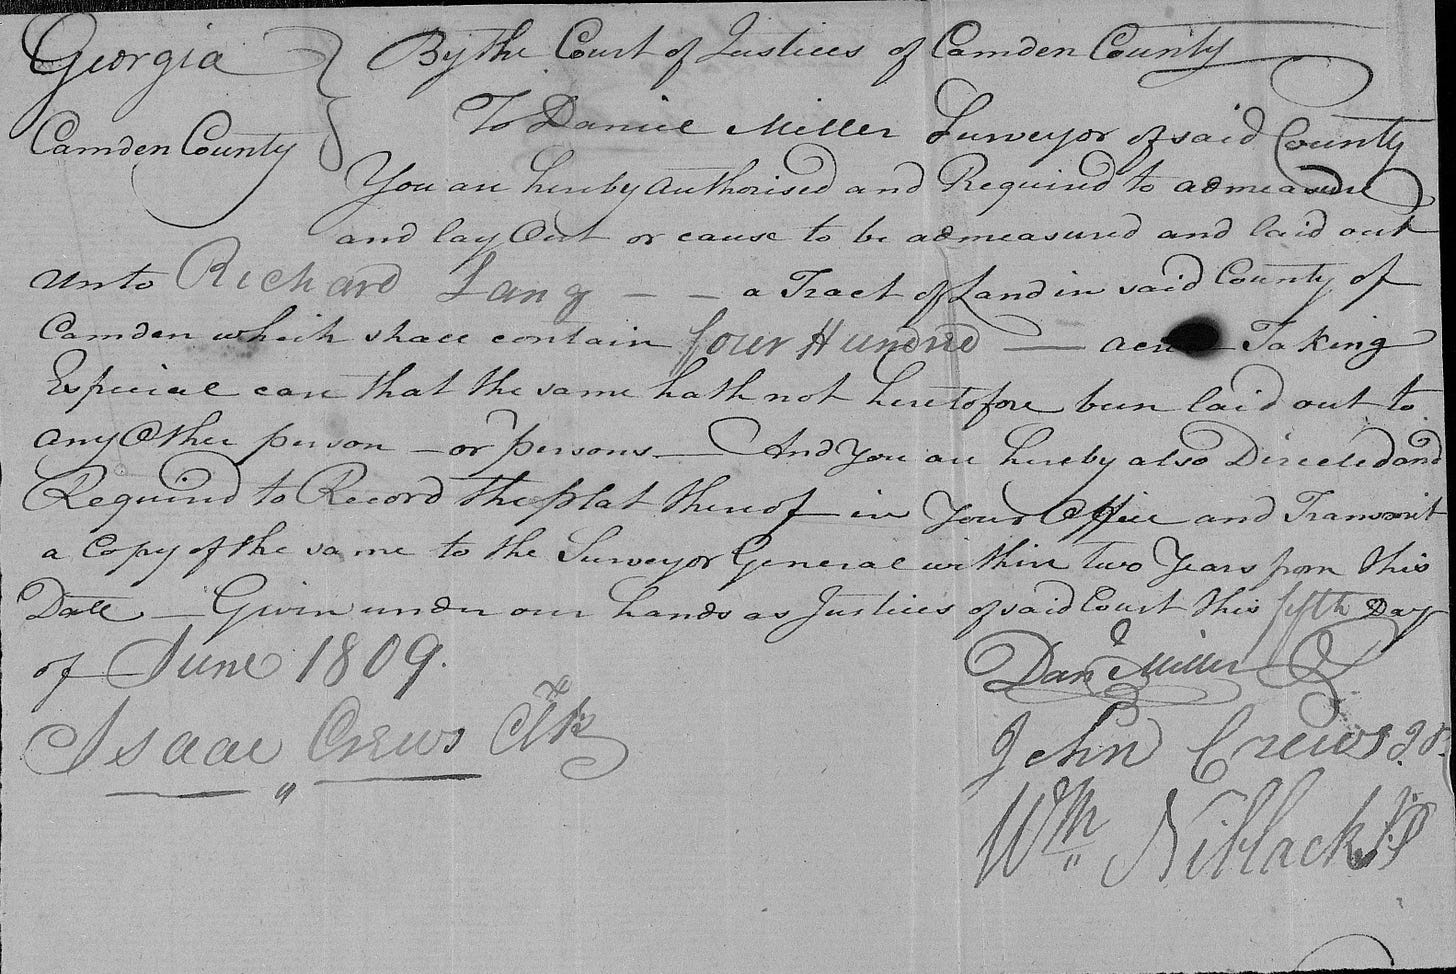 Georgia } By the Court of Justices of Camden County
Camden County } To Daniel Miller Surveyor of said County
You are hereby authorised and Required to admeasure
and lay Out or cause to be admeasured and laid out
unto Richard Lang — — a Tract of Land in said County of
Camden which shall contain four Hundred — acres Taking
Especial care that the same hath not heretofore been laid out to
any Other person — or persons — And You are hereby also Directed and
Required to Record the plat thereof in Your Office and Transmit
a Copy of the same to the Surveyor General within two Years from this
Date — Given under our hands as Justices of said Court this fifth Day
of June 1809.
Danl Miller
Isaac Crews Clk
John Crews J P.
Wm Niblack J.P